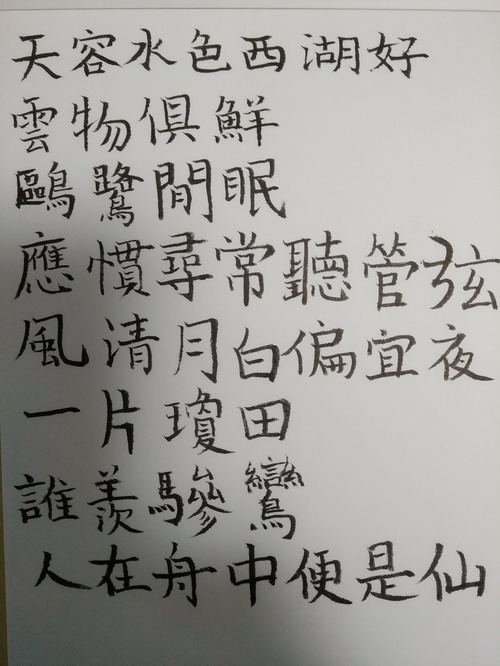 天容水色西湖好
雲物俱鮮
鷗鷺閒眠
應慣尋常聽管弦
風清月白偏宜夜
一片瓊田
誰羨驂鸞
人在舟中便是仙